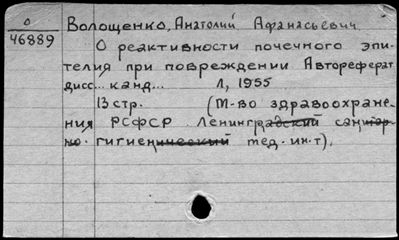 0
46889
Волощенко, Анатолий Афанасьевич
О реактивности почечного эпи-
телия при повреждении Автореферат
дисс... канд... Л, 1955
13 стр. (М-во здравоохране-
ния РСФСР Ленинградский санитар-
но. гигиенический мед. ин-т).